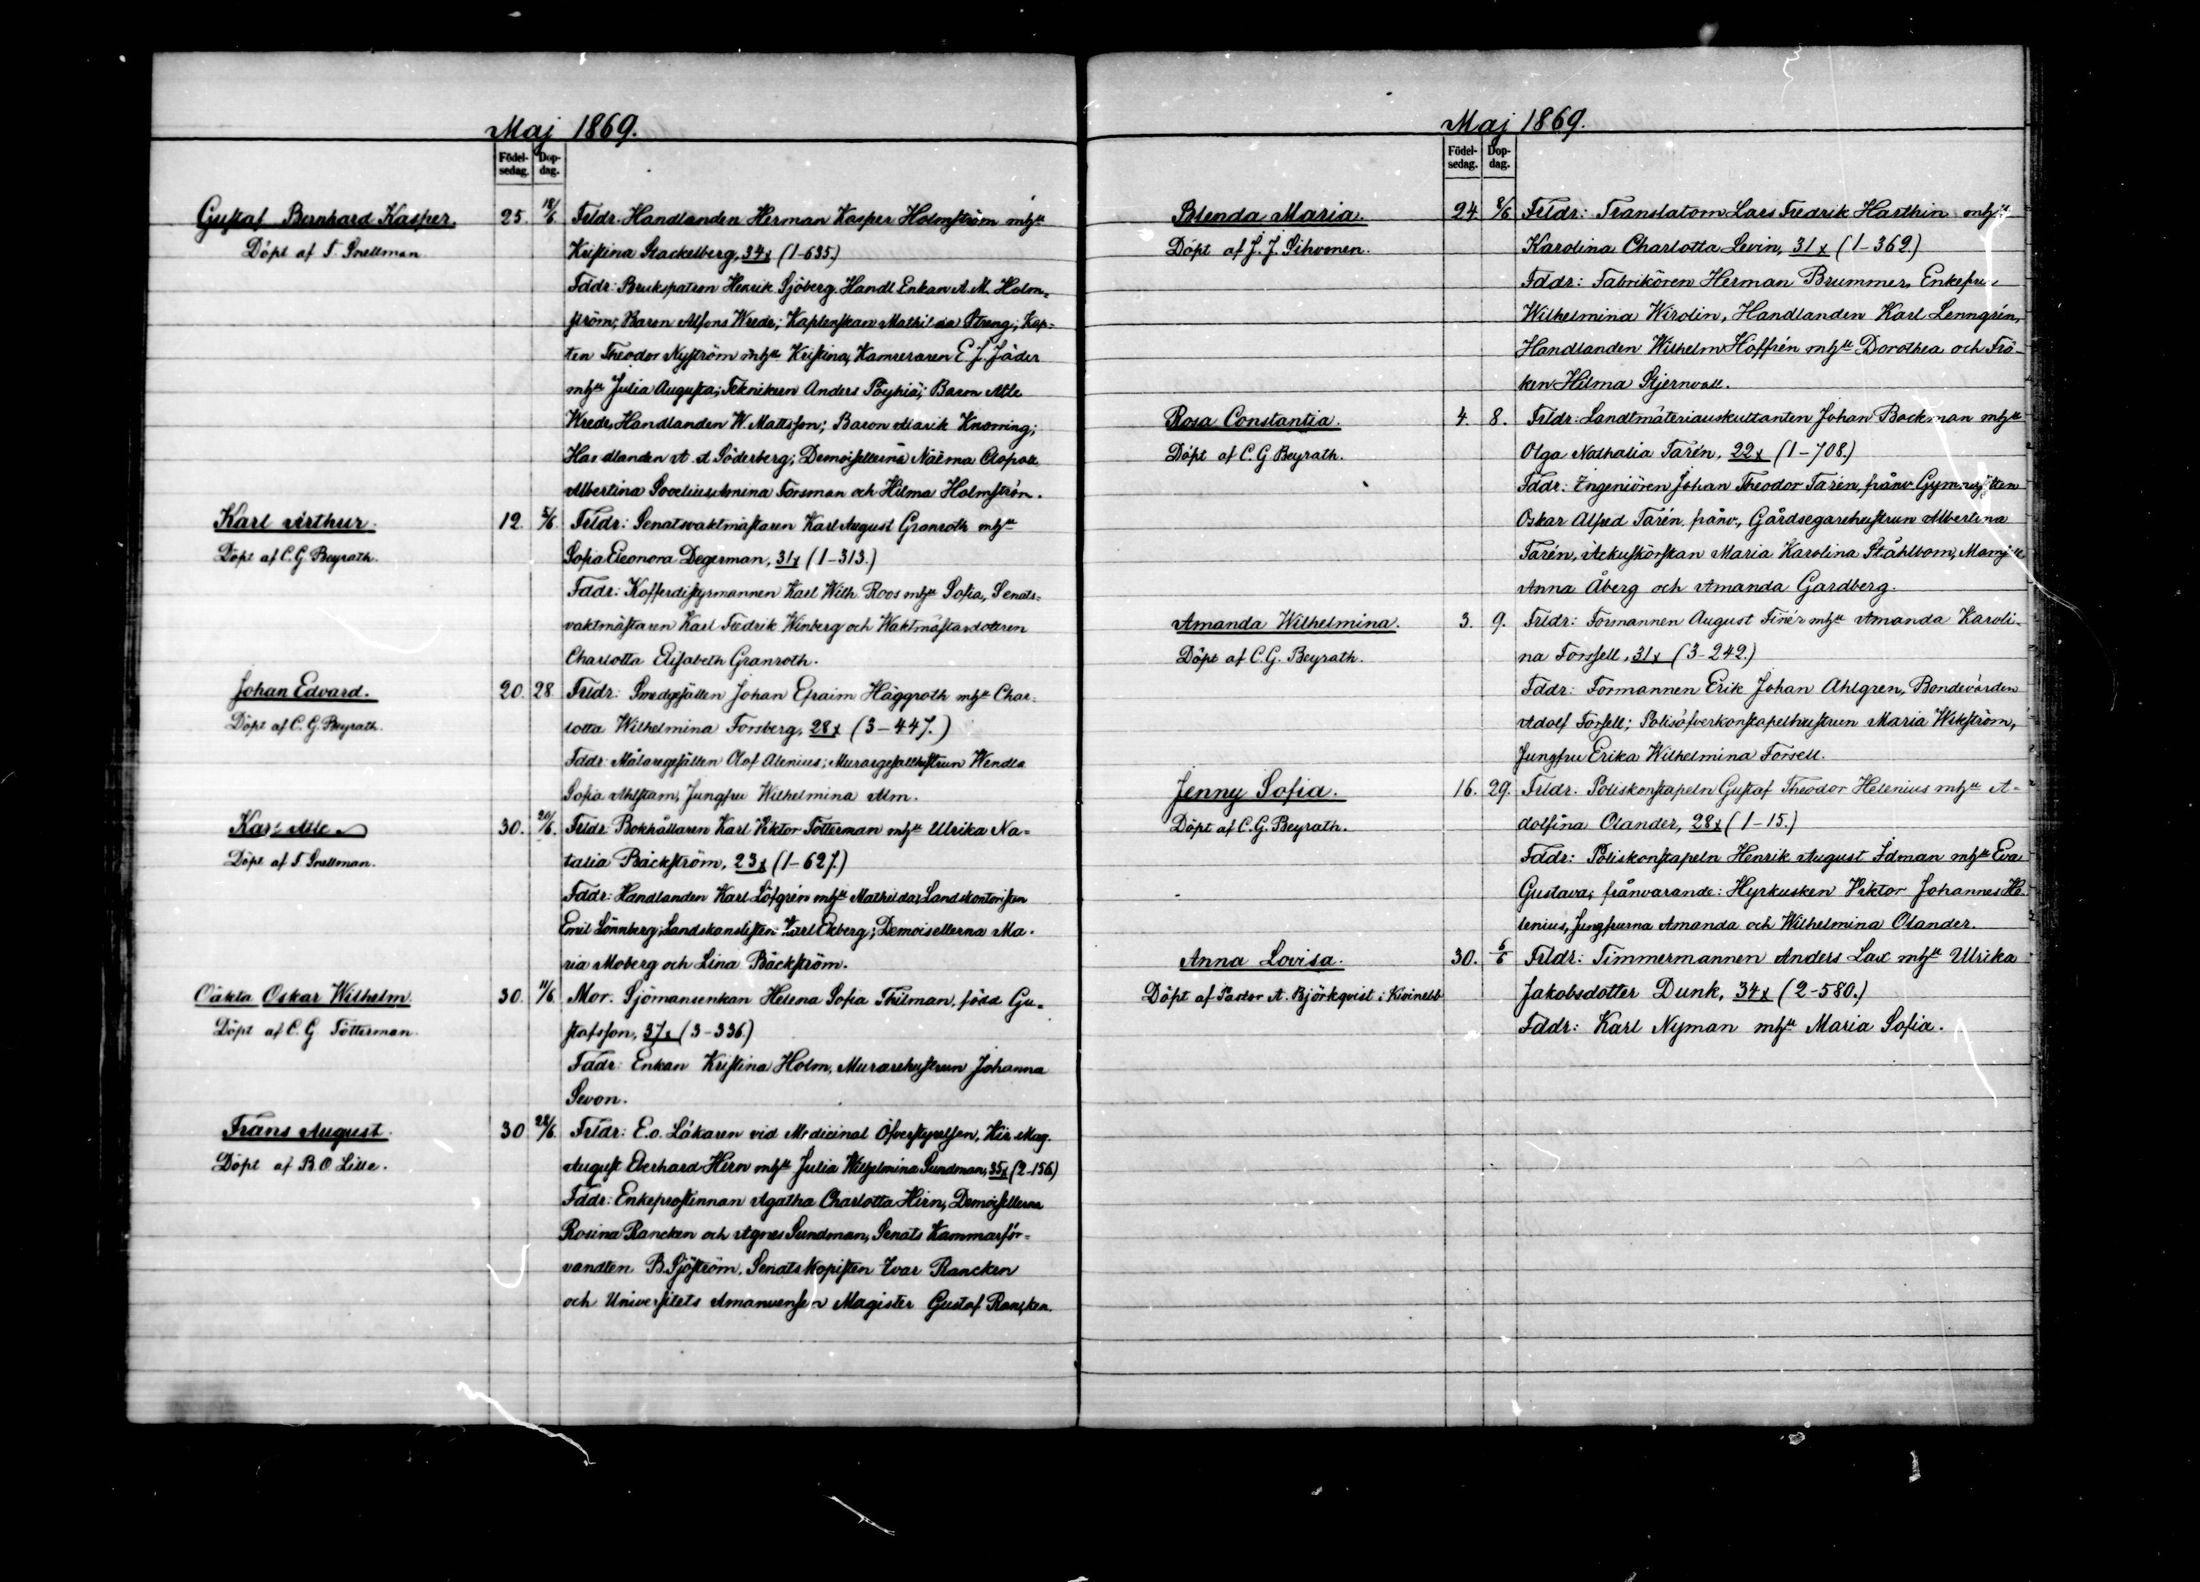 Maj 1869.
Födel-
sedag.
Dop-
dag.
Gustaf Bernhard Kasper.
Döpt af T. Snellman
25. 18/6 Frldr. Handlanden Herman Kasper Holmström mhu
Kristina Stackelberg, 34x (1-635.)
Fddr: Brukspatron Henrik Sjöberg. Handl Enkan A. M. Holm-
ström; Baron Alfons Wrede; Kaptenskan Mathilda Streng; Kap-
ten Theodor Nyström mhu Kristina, Kamreraren E. J. Jäder
mhu Julia Augusta; Teknikern Anders Pöyhiä; Baron Atle
Wrede, Handlanden W. Mattsson; Baron Marik Knorring;
Handlanden A. A Söderberg; Demoisellerna Naëma
Albertina Sovelius, Amina Forsman och Hilma Holmström.
Karl Arthur.
Döpt af C. G. Beyrath.
12. 5/6 Frldr: Senatsvaktmästaren Karl August Granroth mhu
Sofia Eleonora Degerman, 31x (1-313.)
Fddr: Kofferdistyrmannen Karl Wilh. Roos mhu Sofia, Senats-
vaktmästaren Karl Fredrik Winberg och Waktmästardotteren
Charlotta Elisabeth Granroth.
Johan Edvard.
Döpt af C. G. Beyrath.
20. 28. Frldr: Smedgesällen Johan Efraim Häggroth mhu Char-
lotta Wilhelmina Forsberg, 28x (3-447.)
Fddr: Målaregesällen Olof Alenius; Muraregesällhustrun Wendla
Sofia Ahlstam, Jungfru Wilhelmina Alm.
Karl Atle
Döpt af T. Snellman.
30. 20/6. Frldr: Bokhållaren Karl Viktor Tötterman mhu Ulrika Na-
talia Bäckström, 23x (1-627.)
Fddr: Handlanden Karl Löfgrén mhu Mathilda, Landskontoristen
Emil Lönnberg, Landskanslisten Karl Ekberg; Demoisellerna Ma-
ria Moberg och Lina Bäckström.
Oäkta Oskar Wilhelm
Döpt af C. G Tötterman.
30. 11/6. Mor. Sjömansenkan Helena Sofia Thilman, född Gu-
stafsson, 37x (3-336.)
Fddr: Enkan Kristina Holm, Murarehustrun Johanna
Sevon.
Frans August.
Döpt af B. O. Lille.
30 22/6. Frldr: E.o. Läkaren vid Medicinal Öfverstyrelsen, Kir. Mag.
August Eberhard Hirn mhu Julia Wilhelmina Sundman, 35x (2-156)
Fddr: Enkeprostinnan Agatha Charlotta Hirn, Demoisellerna
Rosina Rancken och Agnes Sundman, Senats Kammarför-
vandten B. Sjöström. Senats Kopisten Ivar Rancken
och Universitets Amanuensen Magister Gustaf Rancken.
Maj 1869.
Födel-
sedag.
Dop-
dag.
Blenda Maria.
Döpt af J. J. Sihvonen.
24 8/6 Frldr: Translatorn Lars Fredrik Harthin mhu
Karolina Charlotta Levin, 31x (1-369.)
Fddr: Fabrikören Herman Brummer, Enkefru
Wilhelmina Wirolin, Handlanden Karl Lenngrén,
Handlanden Wilhelm Hoffrén mhu Dorothea och Frö-
ken Hilma Stjernvall.
Rosa Constantia.
Döpt af C. G Beyrath.
4. 8. Frldr: Landtmäteriauskultanten Johan Backman mhu
Olga Nathalia Tarén, 22x (1-708.)
Fddr: Ingeniören Johan Theodor Tarén, frånv. Gymnasisten
Oskar Alfred Tarén frånv., Gårdsegarehustrun Albertina
Tarén, Åkuskörskan Maria Karolina Ståhlbom, Mamjlle
Anna Åberg och Amanda Gardberg.
Amanda Wilhelmina.
Döpt af C. G. Beyrath.
3. 9. Frldr: Formannen August Finér mhu Amanda Karoli-
na Forssell, 31x (3-242.)
Fddr: Formannen Erik Johan Ahlgren, Bondevärden
Adolf Forsell; Polisöfverkonstapelhustrun Maria Wikström,
Jungfru Erika Wilhelmina Forsell.
Jenny Sofia.
Döpt af C. G. Beyrath.
16. 29. Frldr. Poliskonstapeln Gustaf Theodor Helenius mhu A-
dolfina Olander, 28x (1-15.)
Fddr: Poliskonstapeln Henrik August Idman mhu Eva
Gustava; frånvarande: Hyrkusken Viktor Johannes He-
lenius, Jungfrurna Amanda och Wilhelmina Olander.
Anna Lovisa.
Döpt af Pastor A. Björkqvist i Kivinebb
30. 6/6 Frldr: Timmermannen Anders Lax mhu Ulrika
Jakobsdotter Dunk, 34x (2-580.)
Fddr: Karl Nyman mhu Maria Sofia.